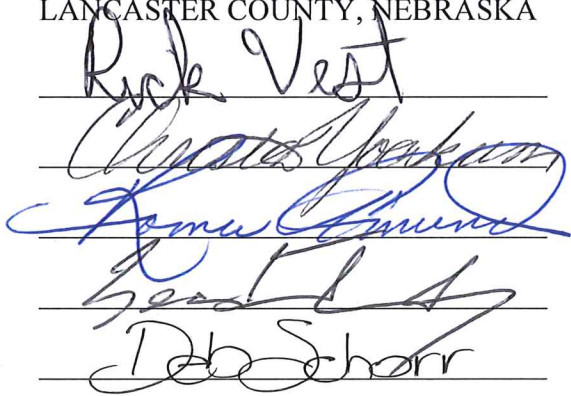 LANCASTER COUNTY, NEBRASKA
Rick Vest
Christa Yoakum
Roma Amundson
Deb Schorr